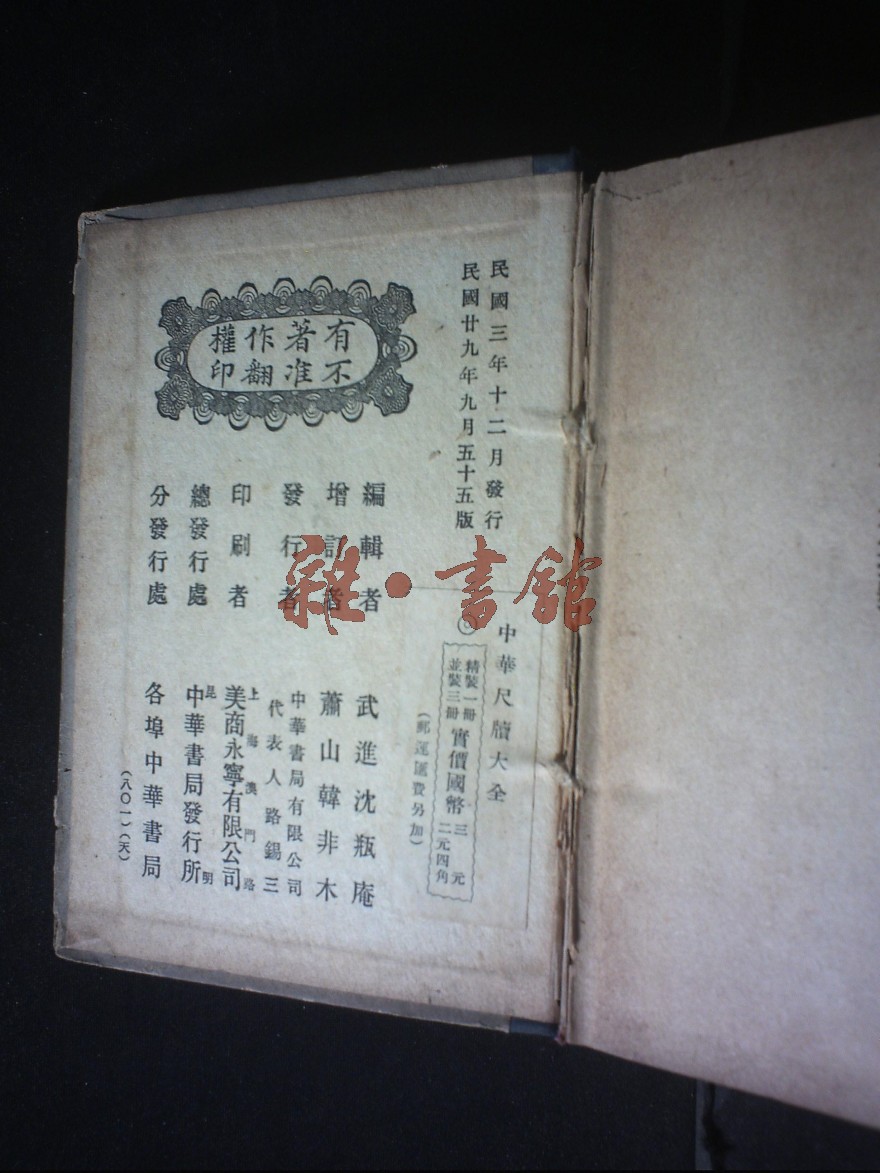 民國三年十二月發行
民國廿九年九月五十五版
中華尺牘大全
精裝一冊
並裝三冊
實價國幣
三元
二元四角
(郵運匯費另加)
有不著准作翻權印
編輯者 武進沈瓶庵
增訂者 蕭山韓非木
發行者 中華書局有限公司
代表人路錫三
上海澳門路
印刷者 美商永寧有限公司
總發行處 昆明 中華書局發行所
分發行處 各埠中華書局
(八〇一)(天)
雜·書館